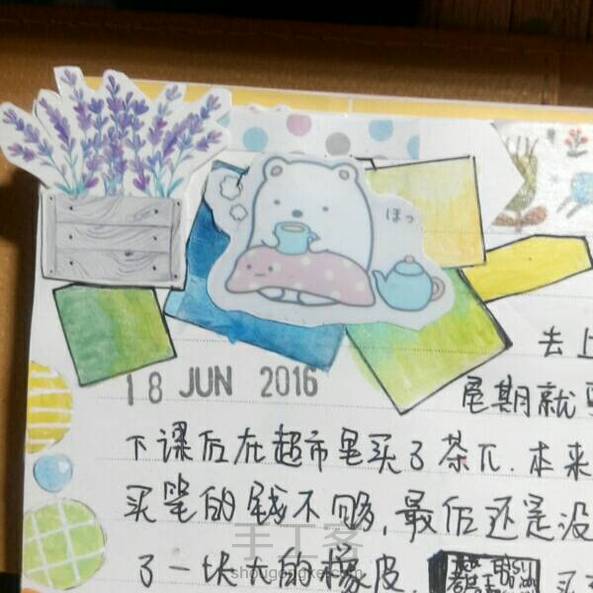 ほっ
18 JUN 2016
去上
星期就
下课后在超市里买了茶兀.本来
买笔的钱不够,最后还是没
了一块大的橡皮.
手工客
shougongke.com